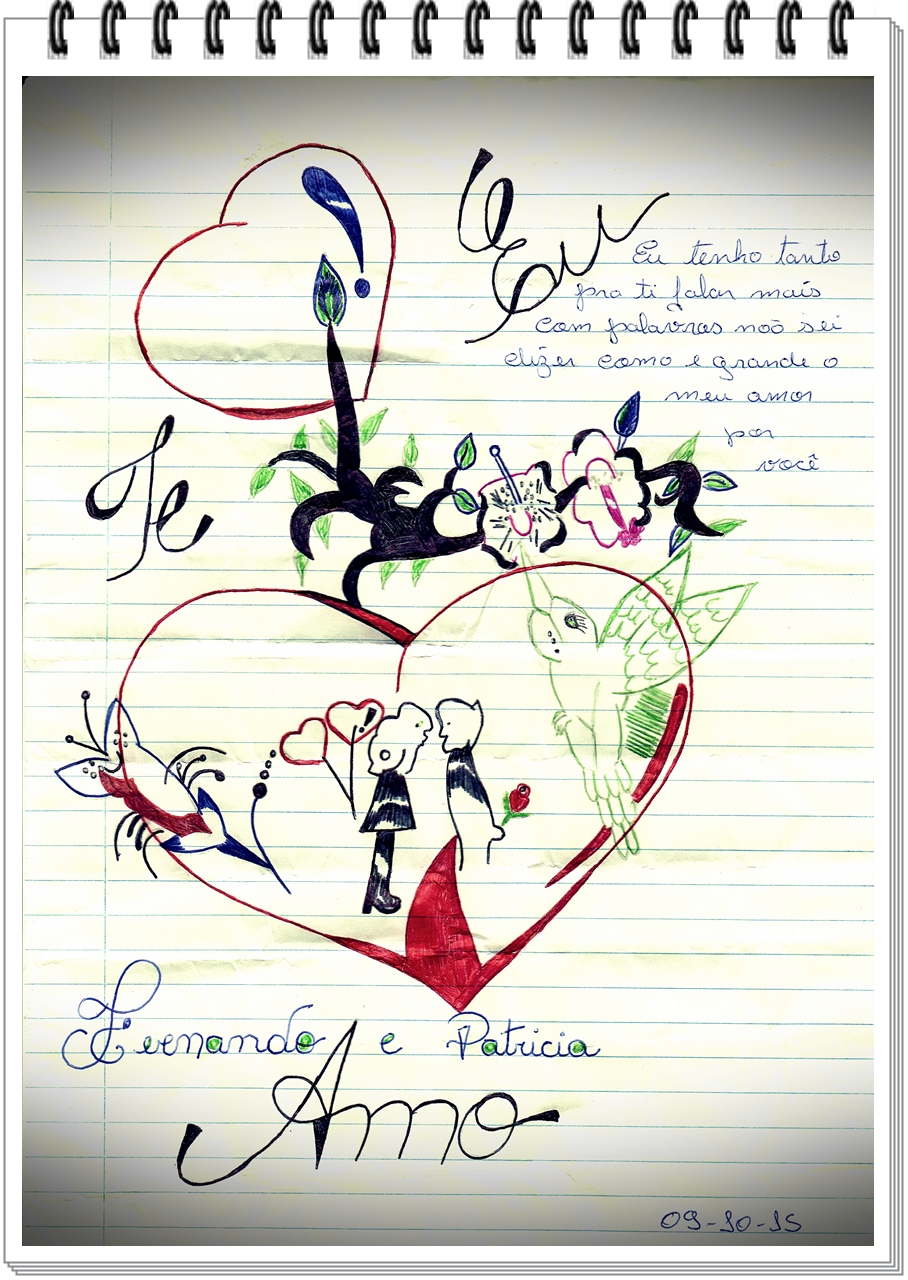 Eu
Eu tenho tanto
pra ti falar mais
com palavras noõ sei
dizer como e grande o
meu amor
por
você
Te
Fernando e Patricia
Amo
09-10-15